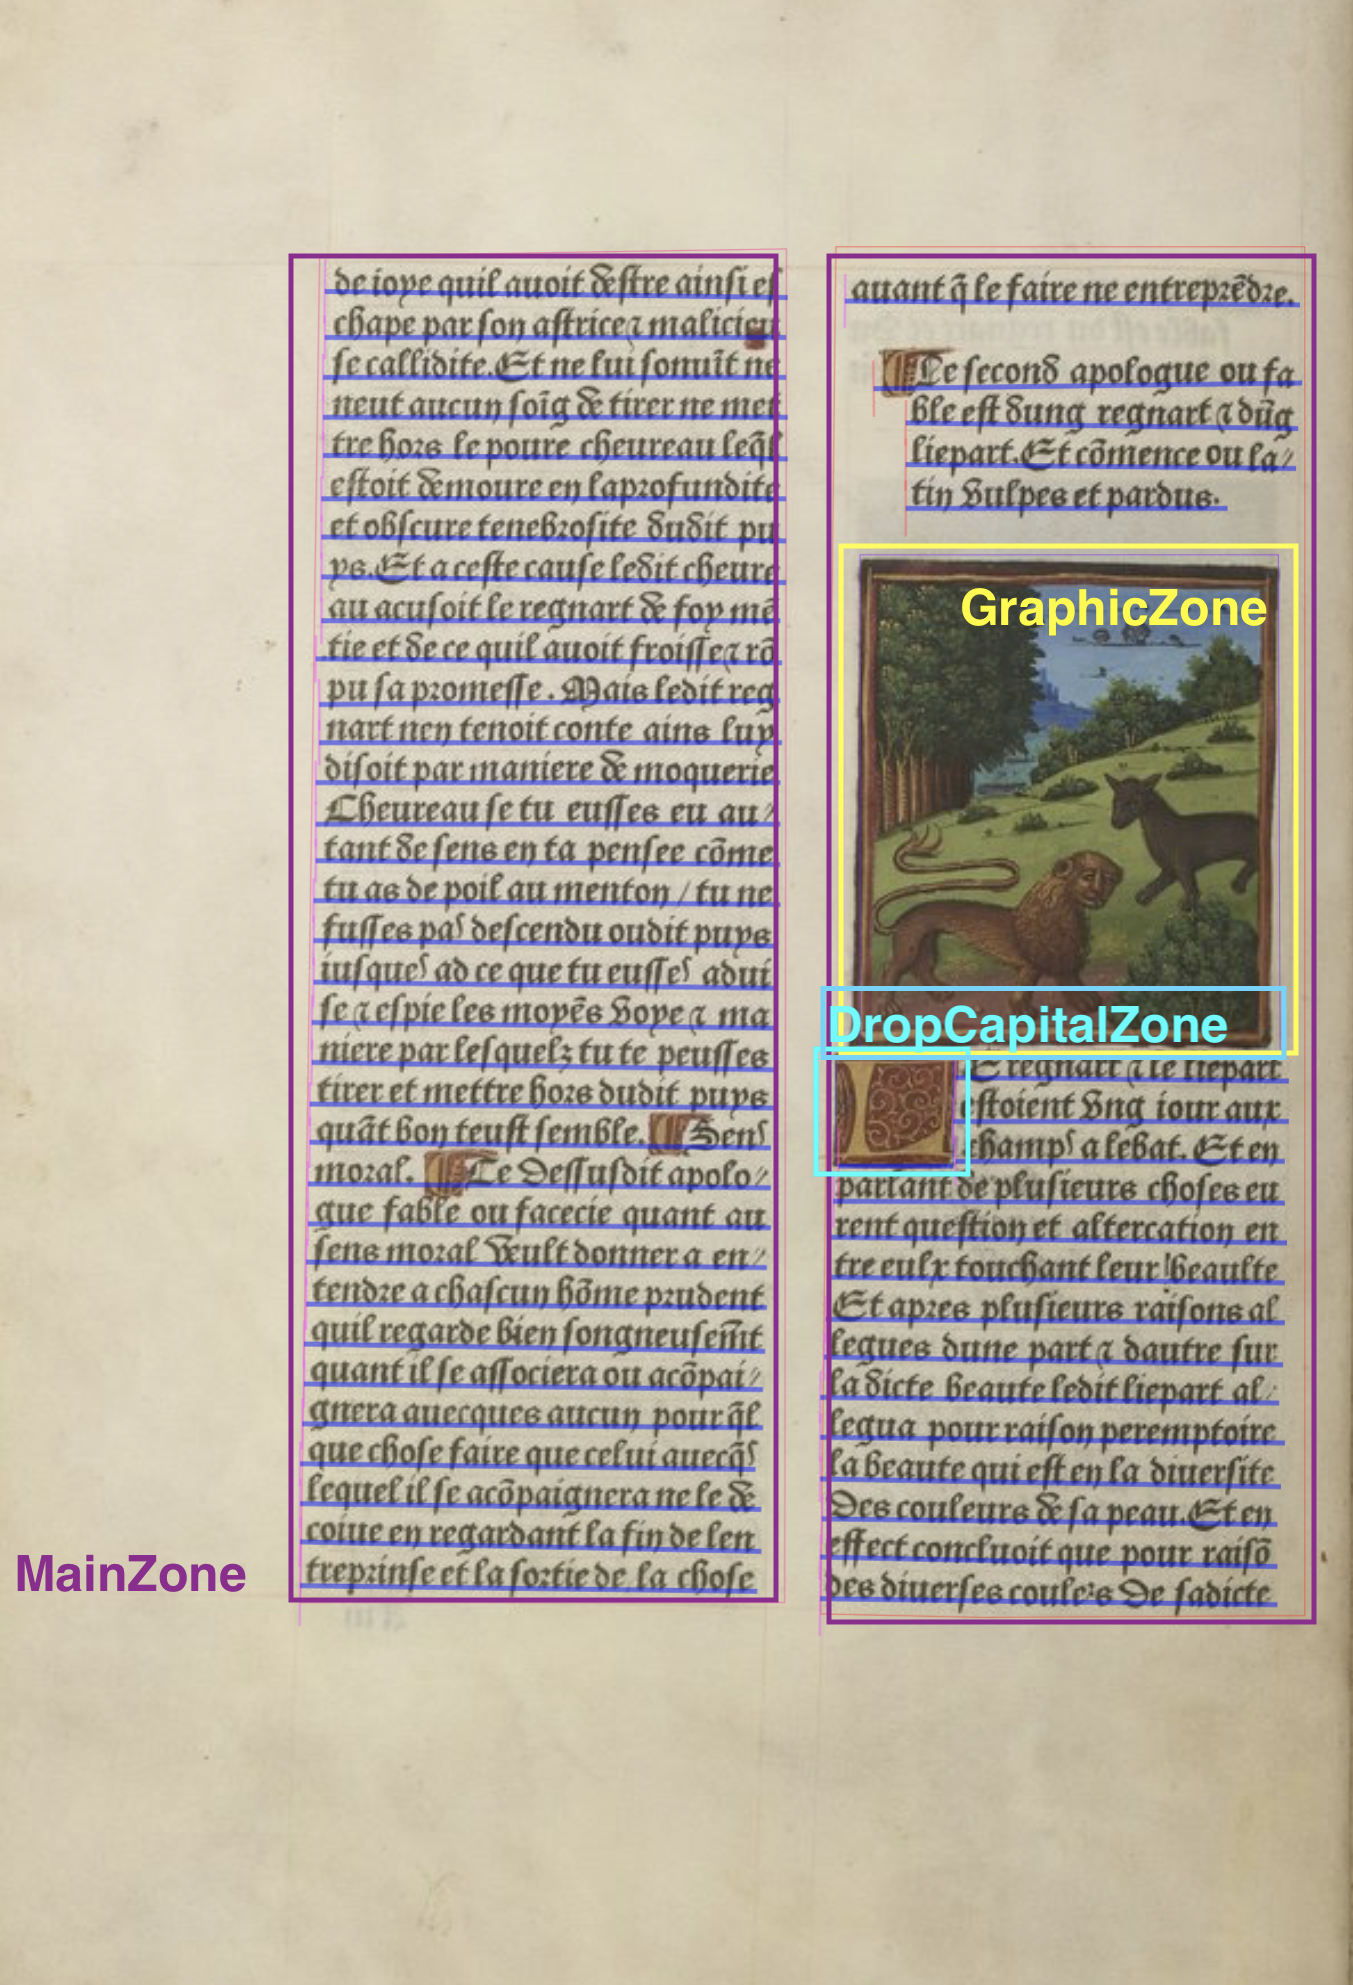 de ioye quil auoit destre ainsi es
chape par son astrice ⁊ malicieu
se callidite. Et ne lui souuīt ne
neut aucun soīg de tirer ne met
tre hors le poure cheureau leq̄l
estoit demoure en laprofundite
et obscure tenebrosite dudit pu
ys. Et a ceste cause ledit cheure
au acusoit le regnart de foy mē
tie et de ce quil auoit froisse ⁊ rō
pu sa promesse. Mais ledit reg
nart nen tenoit conte ains luy
disoit par maniere de moquerie
Cheureau se tu eusses eu au/
tant de sens en ta pensee cōme
tu as de poil au menton / tu ne
fusses pas descendu oudit puys
iusques ad ce que tu eusses adui
se ⁊ espie les moyēs voye ⁊ ma
niere par lesquelz tu te peusses
tirer et mettre hors dudit puys
quāt bon teust semble. Sens
moral. Le dessusdit apolo/
gue fable ou facecie quant au
sens moral veult donner a en/
tendre a chascun hōme prudent
quil regarde bien songneusem̄t
quant il se associera ou acōpai/
gnera auecques aucun pour q̄l
que chose faire que celui auecq̄s
lequel il se acōpaignera ne le de
coiue en regardant la fin de len
treprinse et la sortie de la chose
MainZone
auant q̄ le faire ne entreprēdre.
Le second apologue ou fa
ble est dung regnart ⁊ dūg
liepart. Et cōmence ou la/
tin vulpes et pardus.
GraphicZone
DropCapitalZone
LE regnart ⁊ le liepart
estoient vng iour aux
champs a lebat. Et en
parlant de plusieurs choses eu
rent question et altercation en
tre eulx touchant leur beaulte
Et apres plusieurs raisons al
legues dune part ⁊ dautre sur
la dicte beaute ledit liepart al/
legua pour raison peremptoire
la beaute qui est en la diuersite
Des couleurs de sa peau. Et en
effect concluoit que pour raisō
des diuerses coulers de sadicte